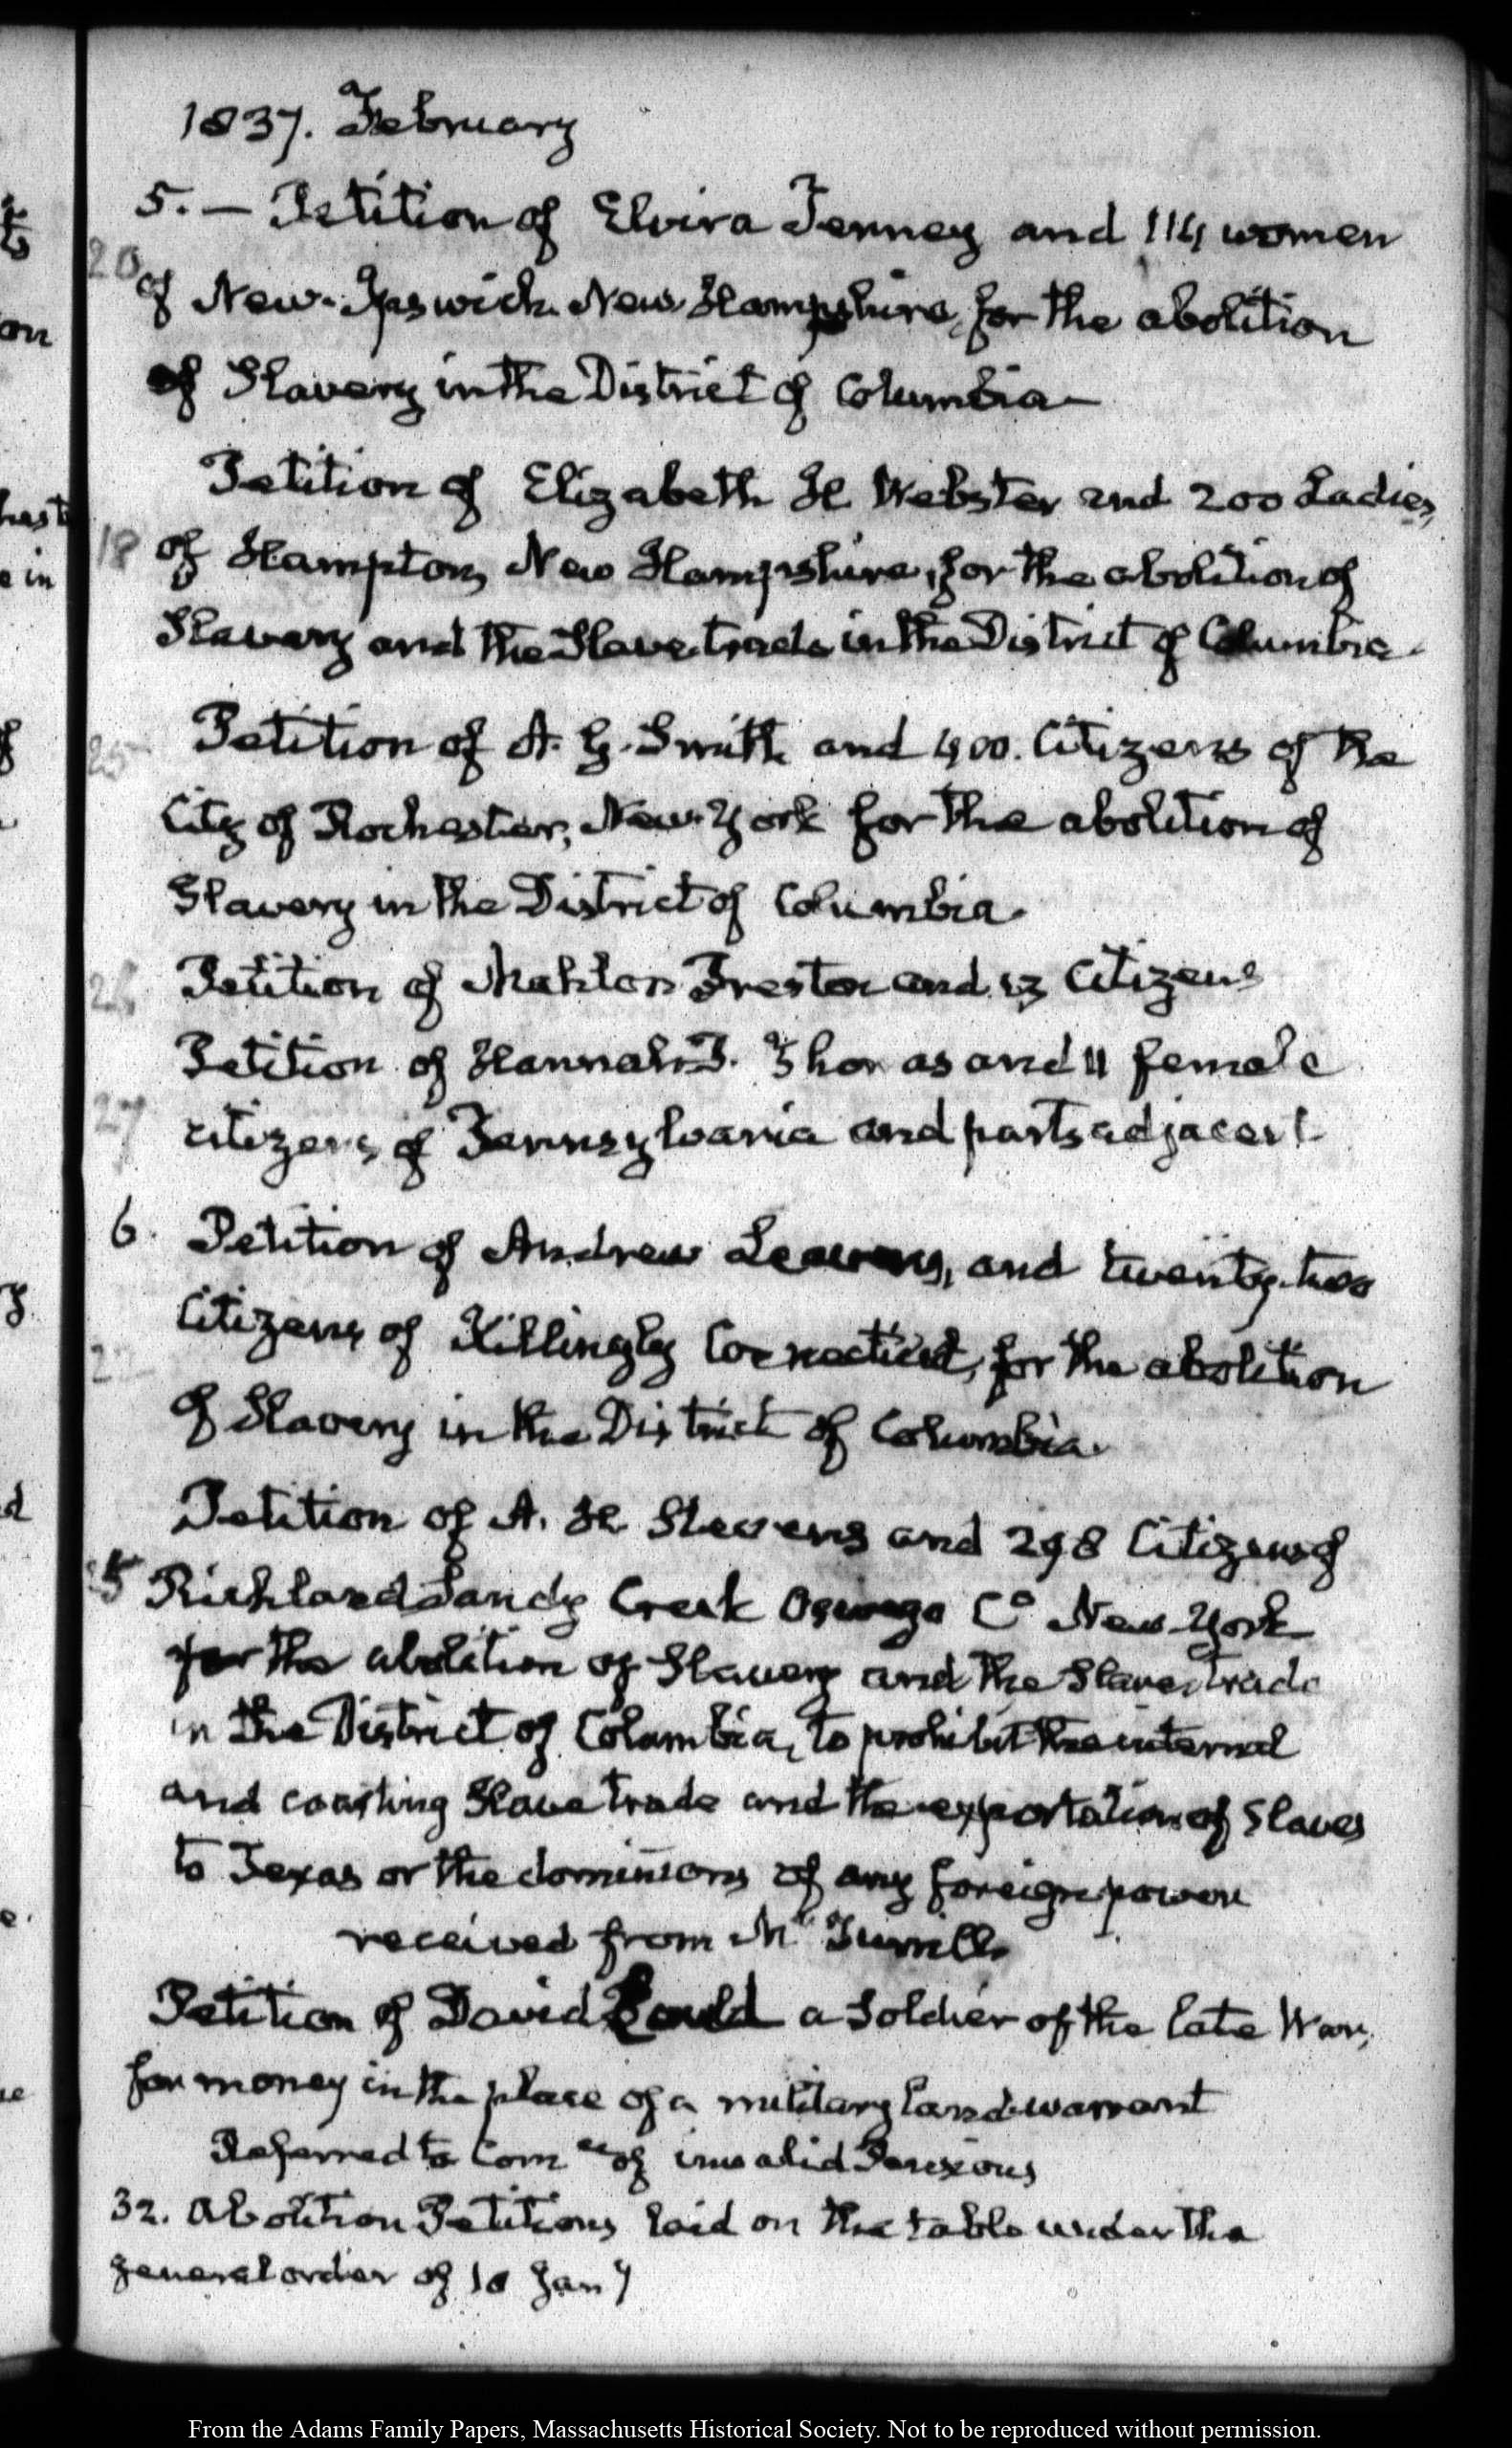 1837. February
5. — Petition of Elvira Tenney and 114 women
20
of New-Ipswich New Hampshire, for the abolition
of Slavery in the District of Columbia—
Petition of Elizabeth H Webster and 200 Ladies,
18
of Hampton, New Hampshire, for the abolition of
Slavery and the Slave trade in the District of Columbia.
Petition of A. G. Smith and 400. Citizens of the
25
City of Rochester, New-York for the abolition of
Slavery in the District of Columbia.
26
Petition of Mahlon Preston and 53 Citizens
Petition of Hannah P. Thomas and 11 female
27
citizens of Pennsylvania and parts adjacent
6. Petition of Andrew and twenty-two
Citizens of Killingly Connecticut, for the abolition
22
of Slavery in the District of Columbia.
Petition of A. H Stevens and 298 Citizens of
Richland Sandy Creek Oswego Co New-York
for the abolition of Slavery and the Slave trade
in the District of Columbia, to prohibit the internal
and coasting Slave trade and the exportation of Slaves
to Texas or the dominions of any foreign power
received from Mr Turrill.
Petition of David Gould a Soldier of the late War,
for money in the place of a military land warrant
Referred to Comee of invalid Pensions
32. Abolition Petitions laid on the table under the
general order of 18 Jany
From the Adams Family Papers, Massachusetts Historical Society. Not to be reproduced without permission.